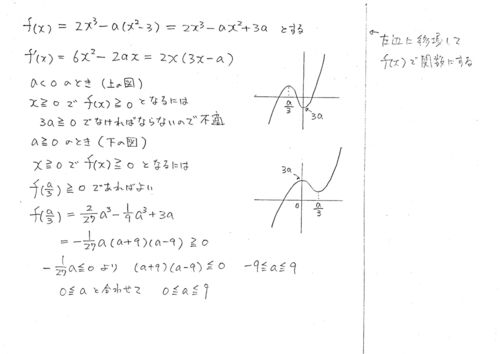 f(x) = 2x³ - a(x²-3) = 2x³ - ax² + 3a とする
f'(x) = 6x² - 2ax = 2x(3x-a)
a<0 のとき (上の図)
x≧0 で f(x)≧0 となるには
3a≧0 でなければならないので不適
a≧0 のとき (下の図)
x≧0 で f(x)≧0 となるには
f(a/3)≧0 であればよい
f(a/3) = 2/27 a³ - 1/9 a³ + 3a
= -1/27 a(a+9)(a-9) ≧ 0
-1/27 a≦0 より (a+9)(a-9)≦0 -9≦a≦9
0≦a と合わせて 0≦a≦9
a/3
3a
3a
0
a/3
左辺に移項して
f(x) で関数にする